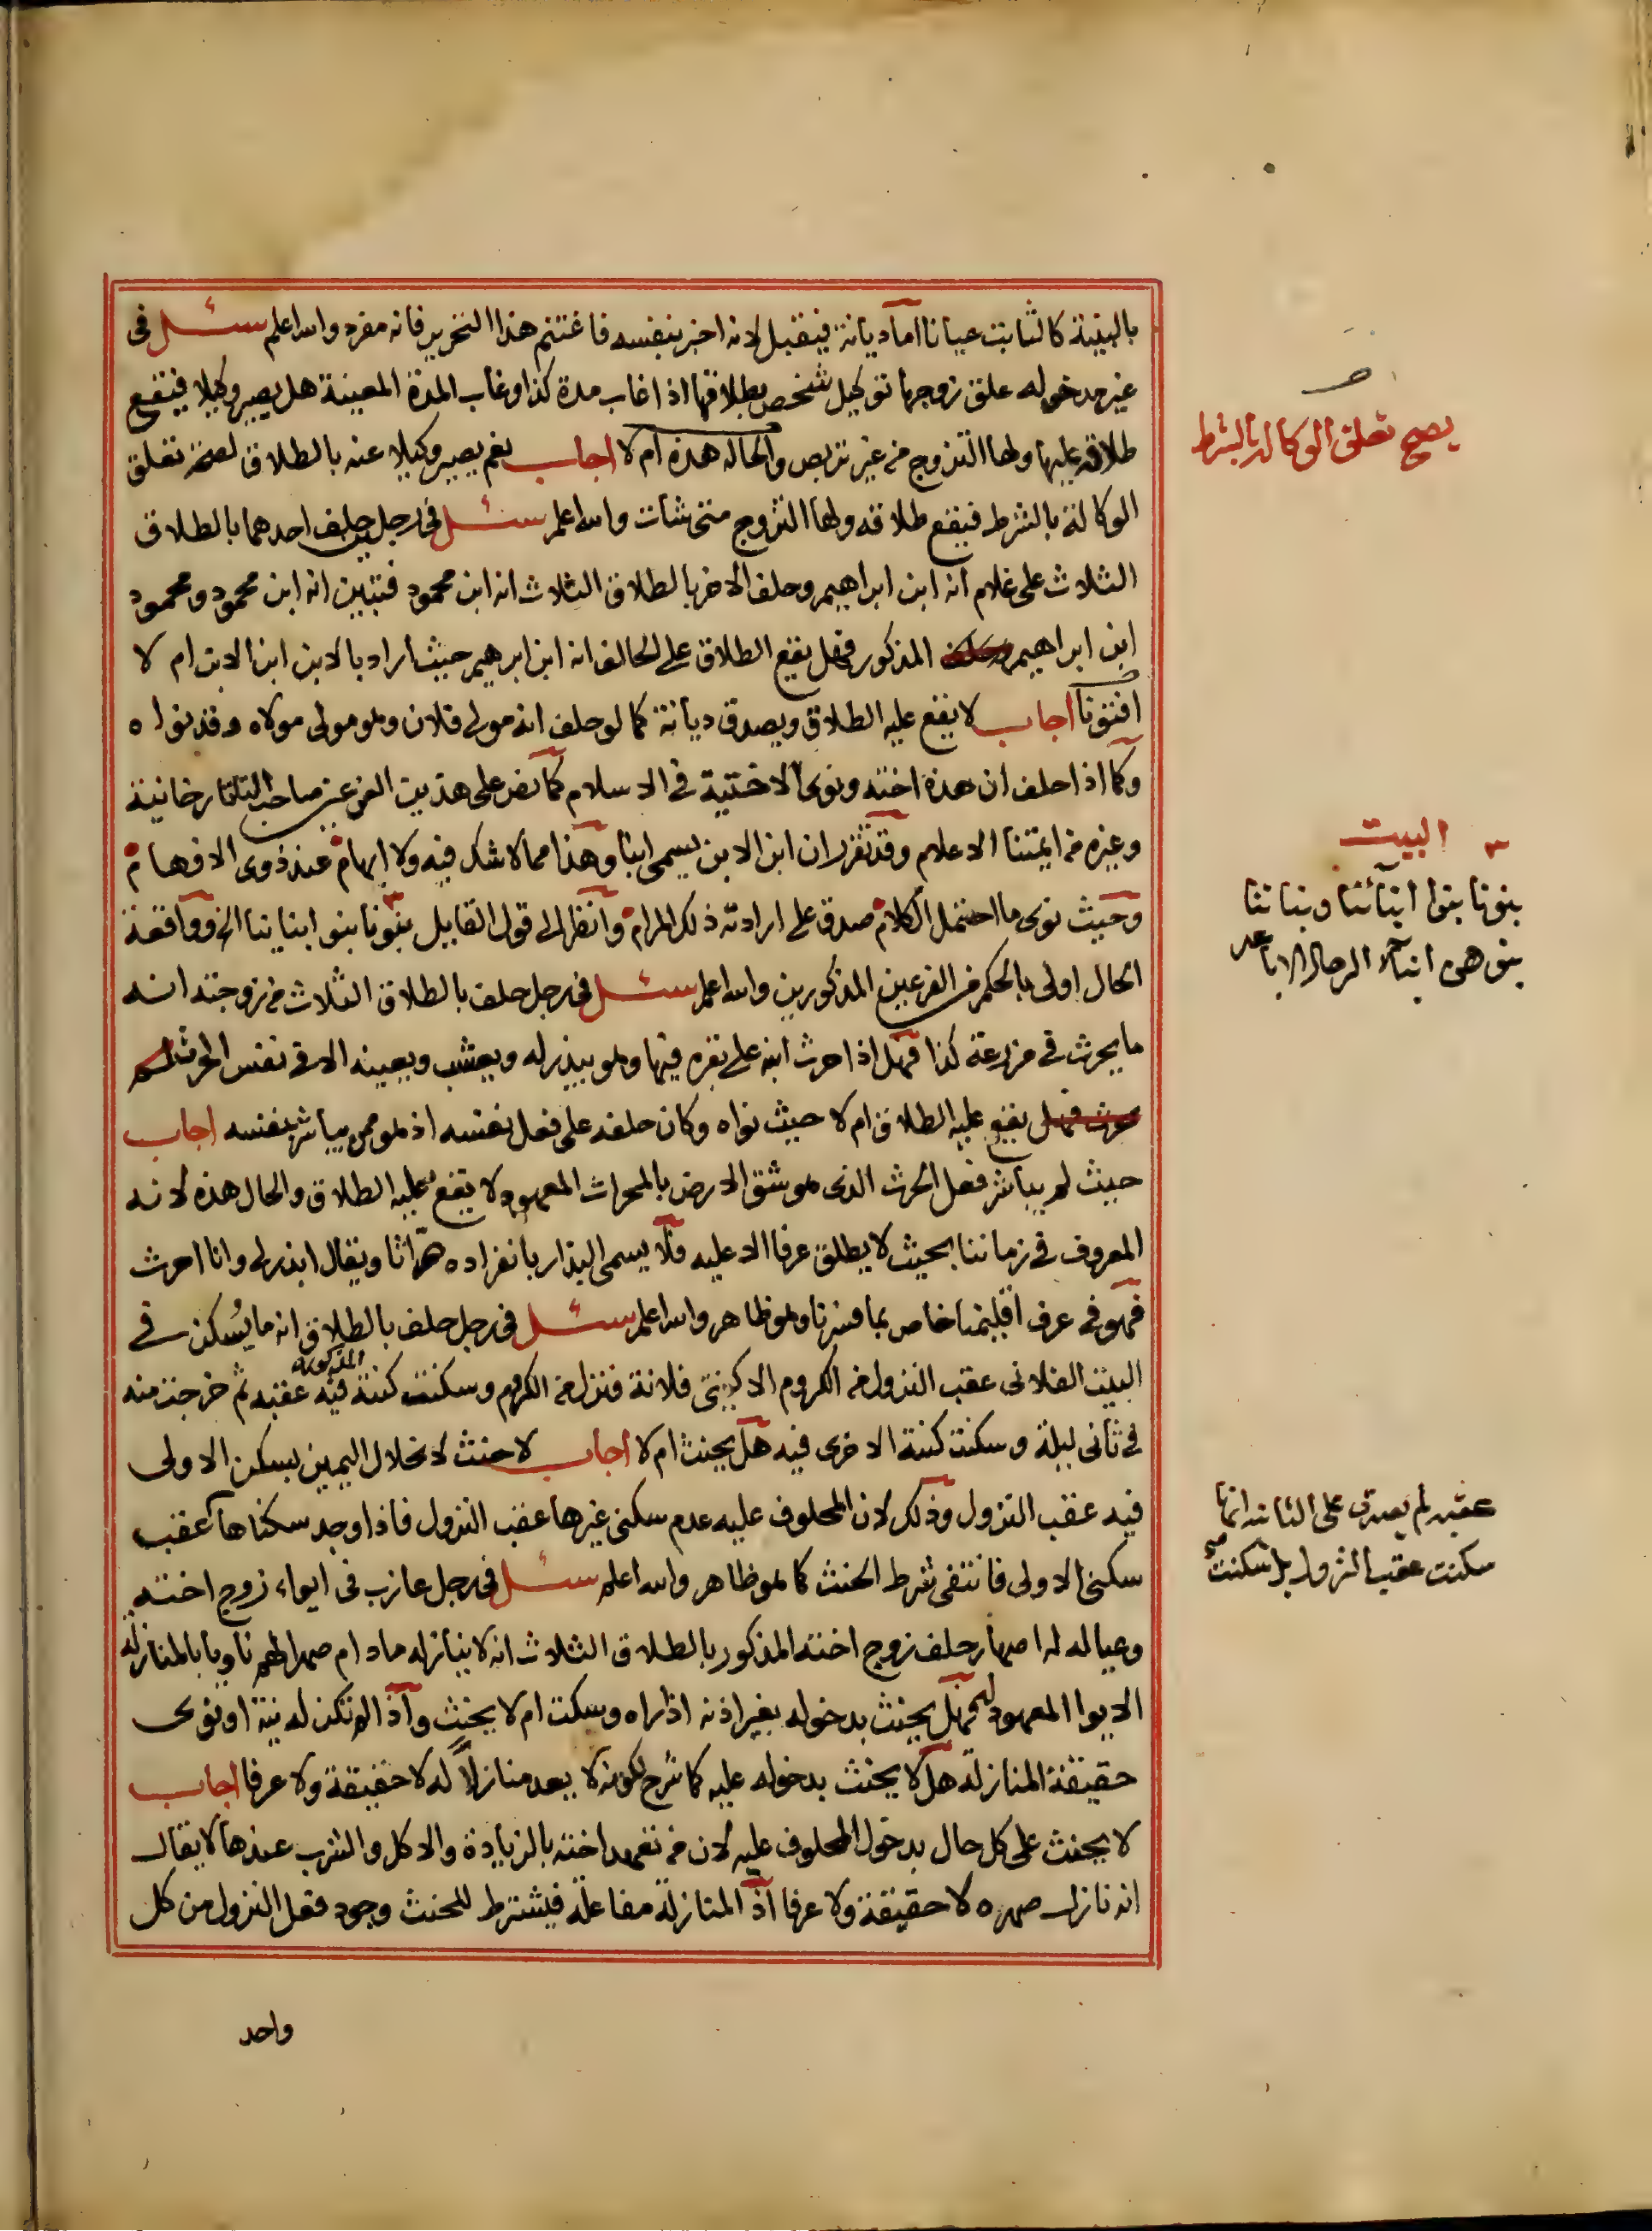 بالبينة كالثابت عيانا اما ديانة فيتقبل لانه اخبر بنفسه فاغتنم هذا التحرير فانه مفرد والله اعلم سئل فى
غير مدخوله علق زوجها توكيل شخص بطلاقها اذا غاب مدة كذا وغاب المدة المعينة هل يصير وكيلا فيقع
طلاقه عليها ولها التزوج من غير تربص والحالة هذه ام لا اجاب نعم يصير وكيلا عنه بالطلاق لصحة تعلق
الوكالة بالشرط فيقع طلاقه ولها التزوج متى شات والله اعلم سئل فى رجلين حلف احدهما بالطلاق
الثلاث على غلام انه ابن ابراهيم وحلف الاخر بالطلاق الثلاث انه ابن محمود فتبين انه ابن محمود ومحمود
ابن ابراهيم المذكور فهل يقع الطلاق على الحالف انه ابن ابرهيم حيث اراد بالابن ابن الابن ام لا
افتونا اجاب لا يقع عليه الطلاق ويصدق ديانة كما لو حلف انه مولى فلان وهو مولى مولاه وقد نواه
وكما اذا حلف ان هذه اخته ونوى الاختية فى الاسلام كما نص على هذين الفرعين صاحب التاتارخانية
وغيره من ايمتنا الاعلام وقد تقرر ان ابن الابن يسمى ابنا وهذا مما لا شك فيه ولا ابهام عند ذوى الافهام
وحيث نوى ما احتمل الكلام صدق على ارادته ذلك المرام وانظر الى قول القايل بنونا بنو ابناينا الخ وواقعة
الحال اولى بالحكم من الفرعين المذكورين والله اعلم سئل فى رجل حلف بالطلاق الثلاث من زوجته انه
ما يحرث فى مزرعة كذا فهل اذا حرث ابنه على بقره فيها وهو يبذر له ويعشب ويعينه الا فى نفس الحرث
يقع عليه الطلاق ام لا حيث نواه وكان حلفه على فعل نفسه اذ هو ممن يباشر بنفسه اجاب
حيث لم يباشر فعل الحرث الذى هو شق الارض بالمحراث المعهود لا يقع عليه الطلاق والحال هذه لانه
المعروف فى زماننا بحيث لا يطلق عرفا الا عليه فلا يسمى البذار بانفراده حراثا ويقال ابذر لى وانا احرث
فهو فى عرف اقليمنا خاص بما فسرنا وهو ظاهر والله اعلم سئل فى رجل حلف بالطلاق انه ما يُسكن فى
البيت الفلانى عقب النزول من الكروم الا كنتى فلانة فنزل من الكروم وسكنت كنته المذكورة فيه عقبه ثم خرجت منه
فى ثانى ليلة وسكنت كنته الاخرى فيه هل يحنث ام لا اجاب لا حنث لانحلال اليمين بسكن الاولى
فيه عقب النزول وذلك لان المحلوف عليه عدم سكنى غيرها عقب النزول فاذا وجد سكناها عقب
سكنى الاولى فانتفى شرط الحنث كما هو ظاهر والله اعلم سئل فى رجل عازب فى ايواء زوج اخته
وعياله له اصهار حلف زوج اخته المذكور بالطلاق الثلاث انه لا ينازله مادام صهرا لهم ناويا بالمنازلة
الايوا المعهود لهم فهل يحنث بدخوله بغير اذنه اذا راه وسكت ام لا يحنث واذا لم تكن له نية او نوى
حقيقة المنازلة هل لا يحنث بدخوله عليه كما شرح لكونه لا يعد منازلا له لا حقيقة ولا عرفا اجاب
لا يحنث على كل حال بدخول المحلوف عليه لان من تعهد اخته بالزيادة والاكل والشرب عندها لا يقال
انه نازل صهره لا حقيقة ولا عرفا اذ المنازلة مفاعلة فيشترط للحنث وجود فعل النزول من كل
واحد
يصح تعلق الوكالة بالشرط
البيت
بنونا بنوا ابنائنا وبناتنا
بنوهن ابناء الرجال الاباعد
عقبه لم يصدق على الثانية انها
سكنت عقب النزول بل سكنت